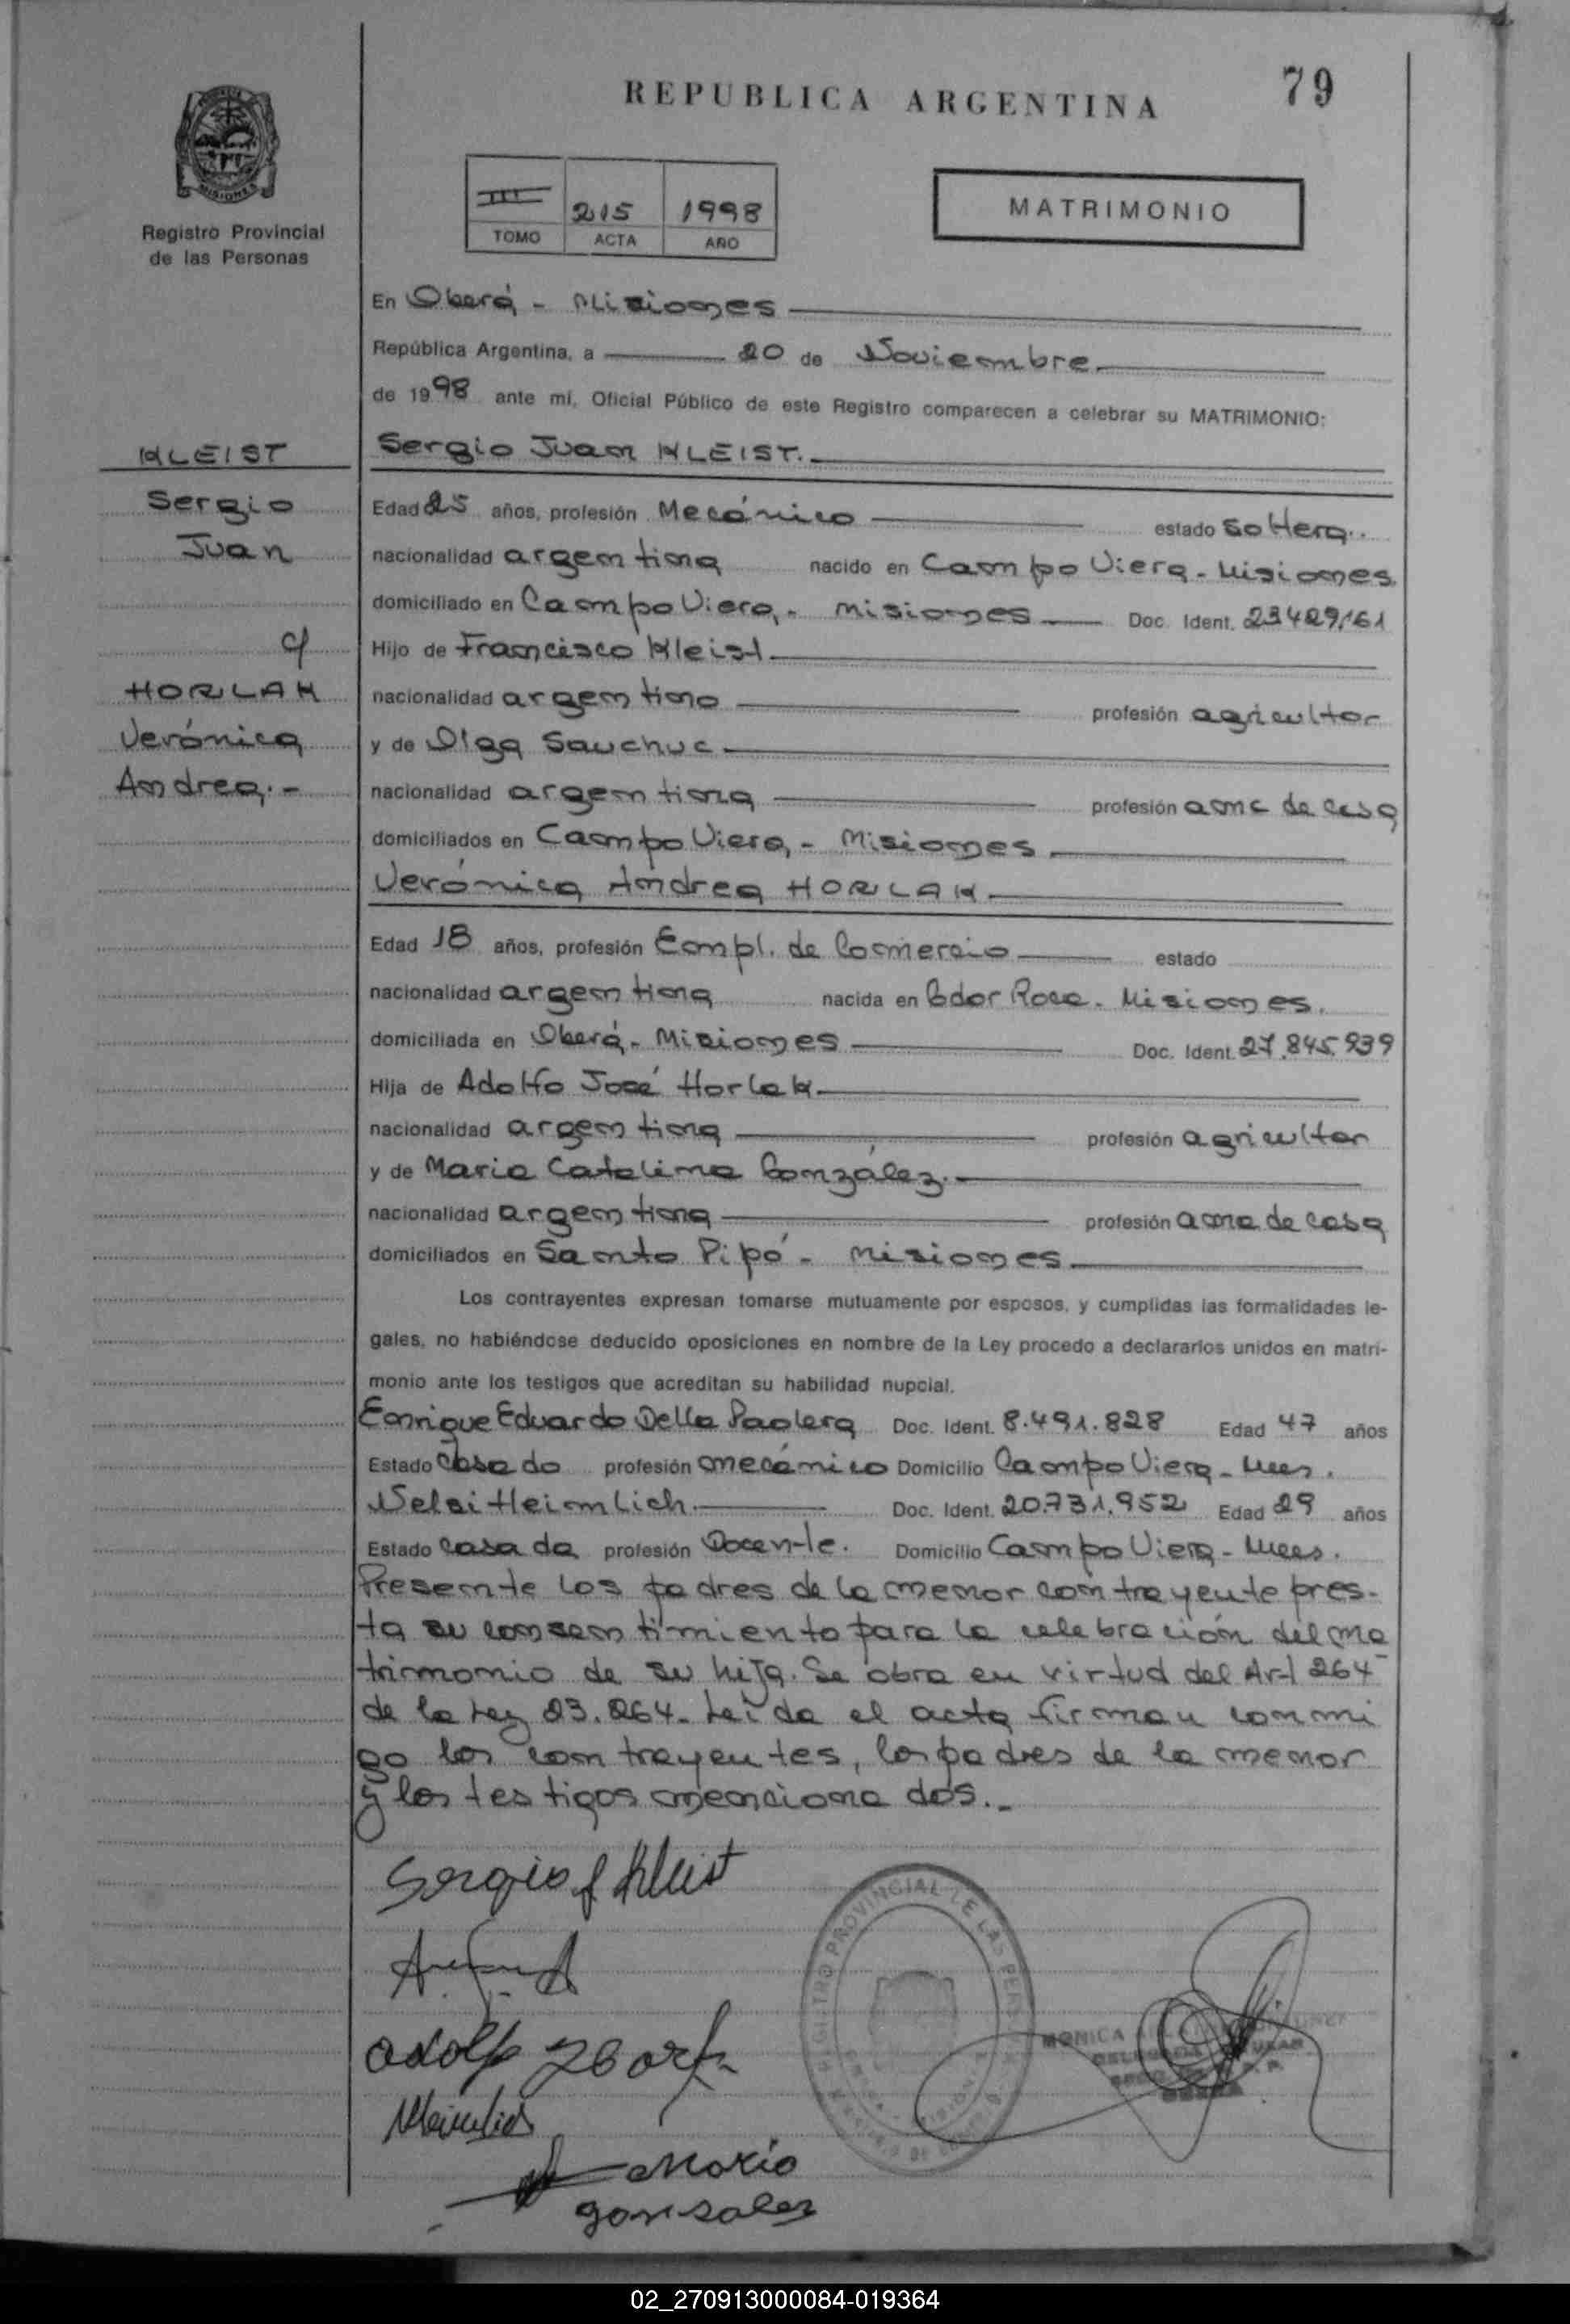 REPUBLICA ARGENTINA
79
MISIONES
Registro Provincial
de las Personas
III 215 1998
TOMO ACTA AÑO
MATRIMONIO
En Oberá - Misiones
República Argentina, a 20 de Noviembre
de 1998 ante mi, Oficial Público de este Registro comparecen a celebrar su MATRIMONIO:
KLEIST
Sergio
Juan
c/
HORLAK
Verónica
Andrea.-
Sergio Juan KLEIST.
Edad 25 años, profesión Mecánico estado soltera..
nacionalidad argentina nacido en Campo Viera - Misiones.
domiciliado en Campo Viera, - Misiones Doc. Ident. 23429161
Hijo de Francisco Kleist
nacionalidad argentino profesión agricultor
y de Olga Sauchuc
nacionalidad argentina profesión ama de casa
domiciliados en Campo Viera, - Misiones
Verónica Andrea HORLAK
Edad 18 años, profesión Empl. de Comercio estado
nacionalidad argentina nacida en Gdor Roca - Misiones.
domiciliada en Oberá - Misiones Doc. Ident. 27.845.939
Hija de Adolfo José Horlak
nacionalidad argentina profesión agricultor
y de Maria Catalina González.
nacionalidad argentina profesión ama de casa
domiciliados en Santo Pipó - Misiones
Los contrayentes expresan tomarse mutuamente por esposos, y cumplidas las formalidades le-
gales, no habiéndose deducido oposiciones en nombre de la Ley procedo a declararlos unidos en matri-
monio ante los testigos que acreditan su habilidad nupcial.
Enrique Eduardo Della Paolera Doc. Ident. 8.491.828 Edad 47 años
Estado Casado profesión mecánico Domicilio Campo Viera - Mnes.
Nelsi Heimlich. Doc. Ident. 20.731.952 Edad 29 años
Estado casada profesión Docente. Domicilio Campo Viera - Mnes.
Presente los padres de la menor contrayente pres-
ta su consentimiento para la celebración del ma
trimonio de su hija. Se obra en virtud del Art 264
de la Ley 23.264. Leída el acta firman conmi
go los contrayentes, los padres de la menor
y los testigos mencionados.-
Sergio J Kleist
MONICA
OBERA
Mario
gonsales
02_270913000084-019364